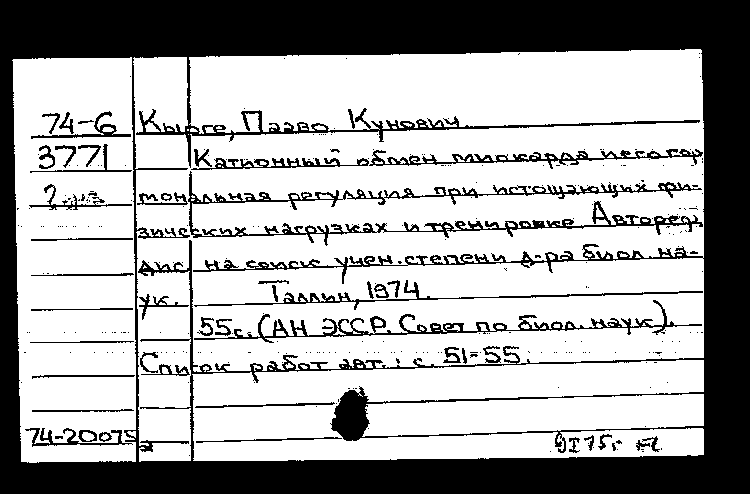 74-6 Кырге, Пааво Кунович.
3771 Катионный обмен миокарда и его гор
2 мональная регуляция при истощающих фи-
зических нагрузках и тренировке Автореф.
дис на соиск учен. степени д-ра биол. на-
ук. Таллин, 1974.
55с. (АН ЭССР. Совет по биол. наук).
Список работ авт.: с. 51-55.
74-20075
9I75г